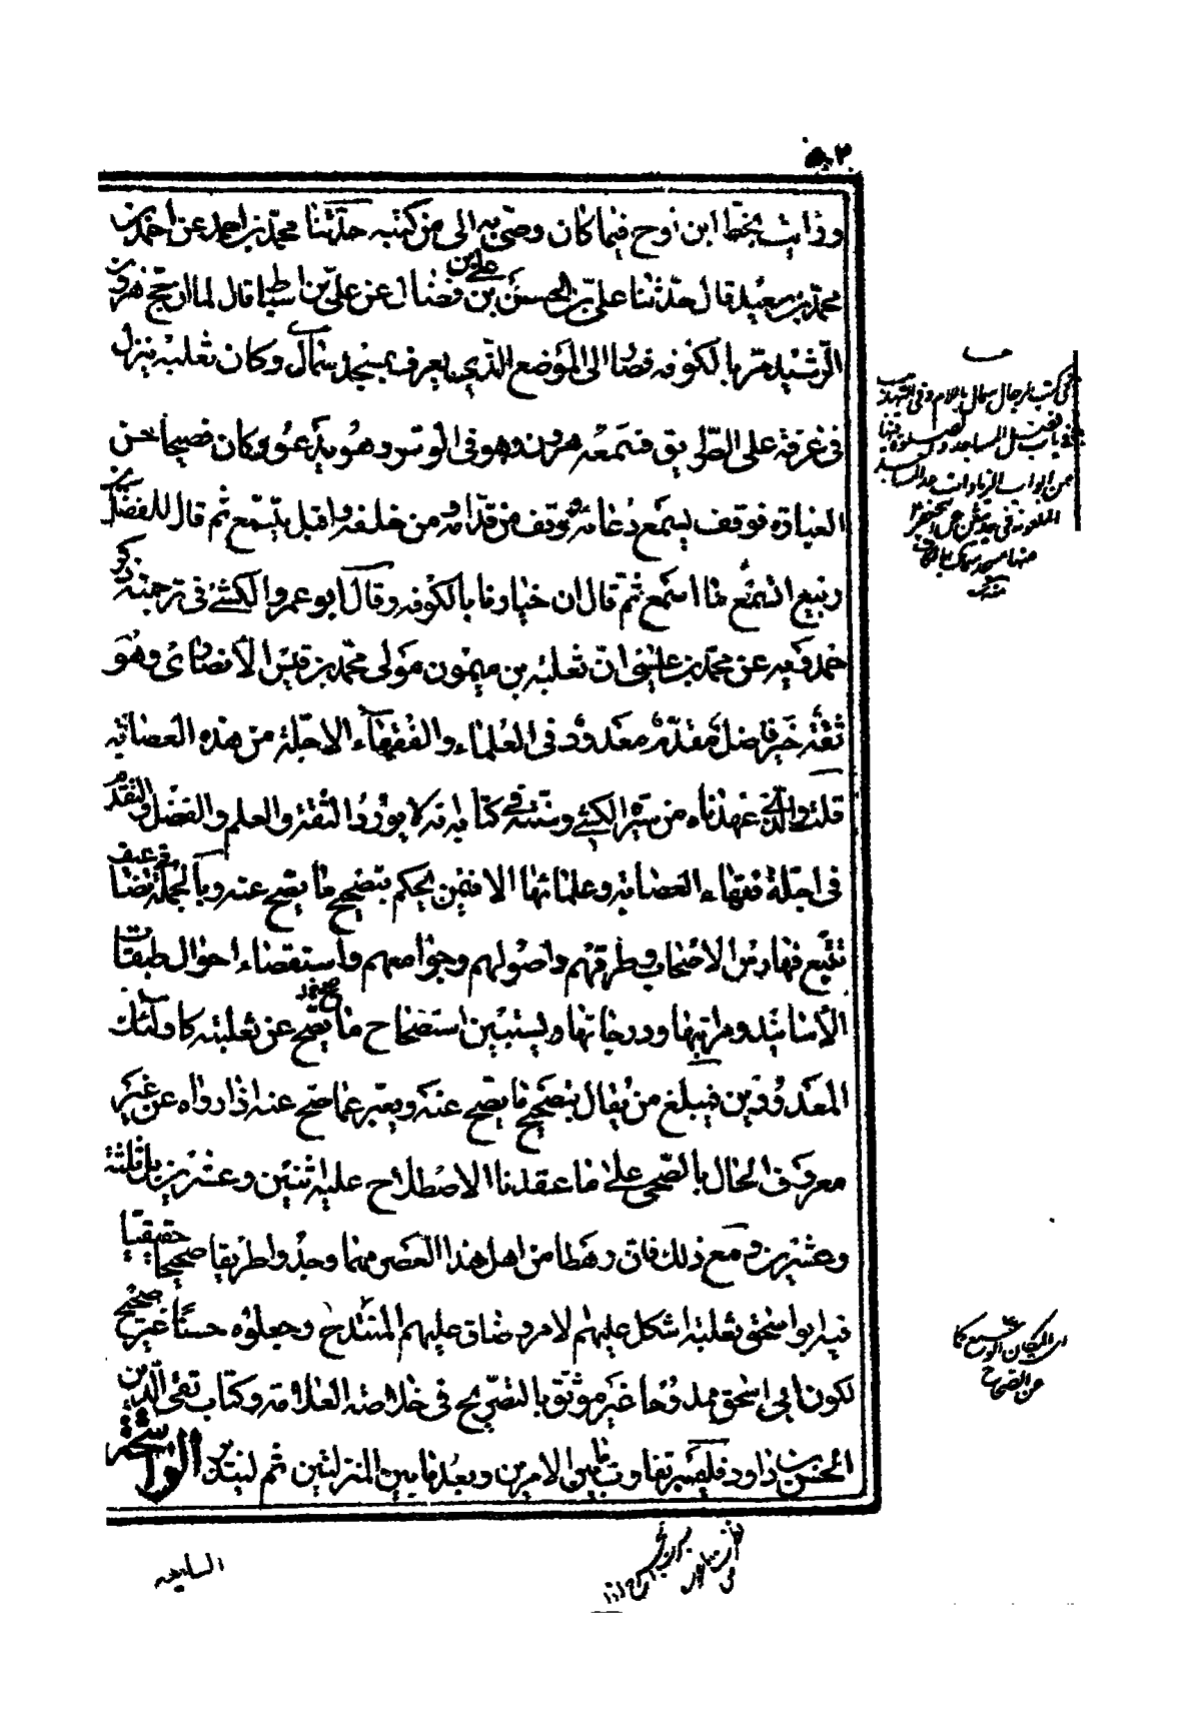 ورأيت بخط ابن نوح فيما كان وصى به إلى من كتبه حدثنا محمد بن احمد عن احمد بن
محمد بن سعيد قال حدثنا علي بن الحسن بن علي بن فضال عن علي بن اسباط قال لما ان حج هرون
الرشيد مر بالكوفه فصار الى الموضع الذي يعرف بمسجد سمال وكان ثعلبة ينزل
في غرفة على الطريق فسمعه هرون وهو في الوتر وهو يدعو وكان فصيحا حسن
العبارة فوقف يسمع دعائه ووقف من قدامه ومن خلفه واقبل يتسمع ثم قال للفضل بن
ربيع اتسمع ما اسمع ثم قال ان خيارنا بالكوفه وقال ابو عمرو الكشي في ترجمته ذكر
حمدويه عن محمد بن عيسى ان ثعلبة بن ميمون مولى محمد بن قيس الأنصاري وهو
ثقة خير فاضل مقدم معدود في العلماء والفقهاء الاجلة من هذه العصابة
قلت والذي عهدناه من سيرة الكشي وسنته في كتابه انه لا يورد الثقة والعلم والفضل والتقدم
في اجلة فقهاء العصابة وعلمائها الا فيمن يحكم بتصحيح ما يصح عنه وبالجملة
تتبع فهارس الاصحاب وطرقهم واصولهم وجوامعهم واستقصاء احوال طبقات
الأسانيد ومراتبها ودرجاتها يستبين استصحاح ما يصح عن ثعلبة كاولئك
المعدودين فيبلغ من يقال بتصحيح ما يصح عنه ويعتبر عما صح عنه اذا رواه عن غير
معروف الحال بالصحي على ما عقدنا الاصطلاح عليه اثنين وعشرين بل ثلثة
وعشرين ومع ذلك فان رهطا من اهل هذا العصر مهما وجدوا طريقا صحيحا حقيقيا
فيه ابو اسحق ثعلبة اشكل عليهم الامر وضاق عليهم المنتدح وجعلوه حسنا غير صحيح
لكون ابي اسحق ممدوحا غير موثق بالتصريح في خلاصة العلامة وكتاب تقي الدين
الحسن بن داود فليتبصر تفاوت ما بين الامرين وبعد ما بين المنزلتين ثم ليتدبر الراشحة
السابعة
في كتب الرجال سمال باللام وفي التهذيب
في باب فضل المساجد والصلوة فيها
من ابواب الزيادات
منها مسجد سماك بالكاف
اى المكان الوسيع